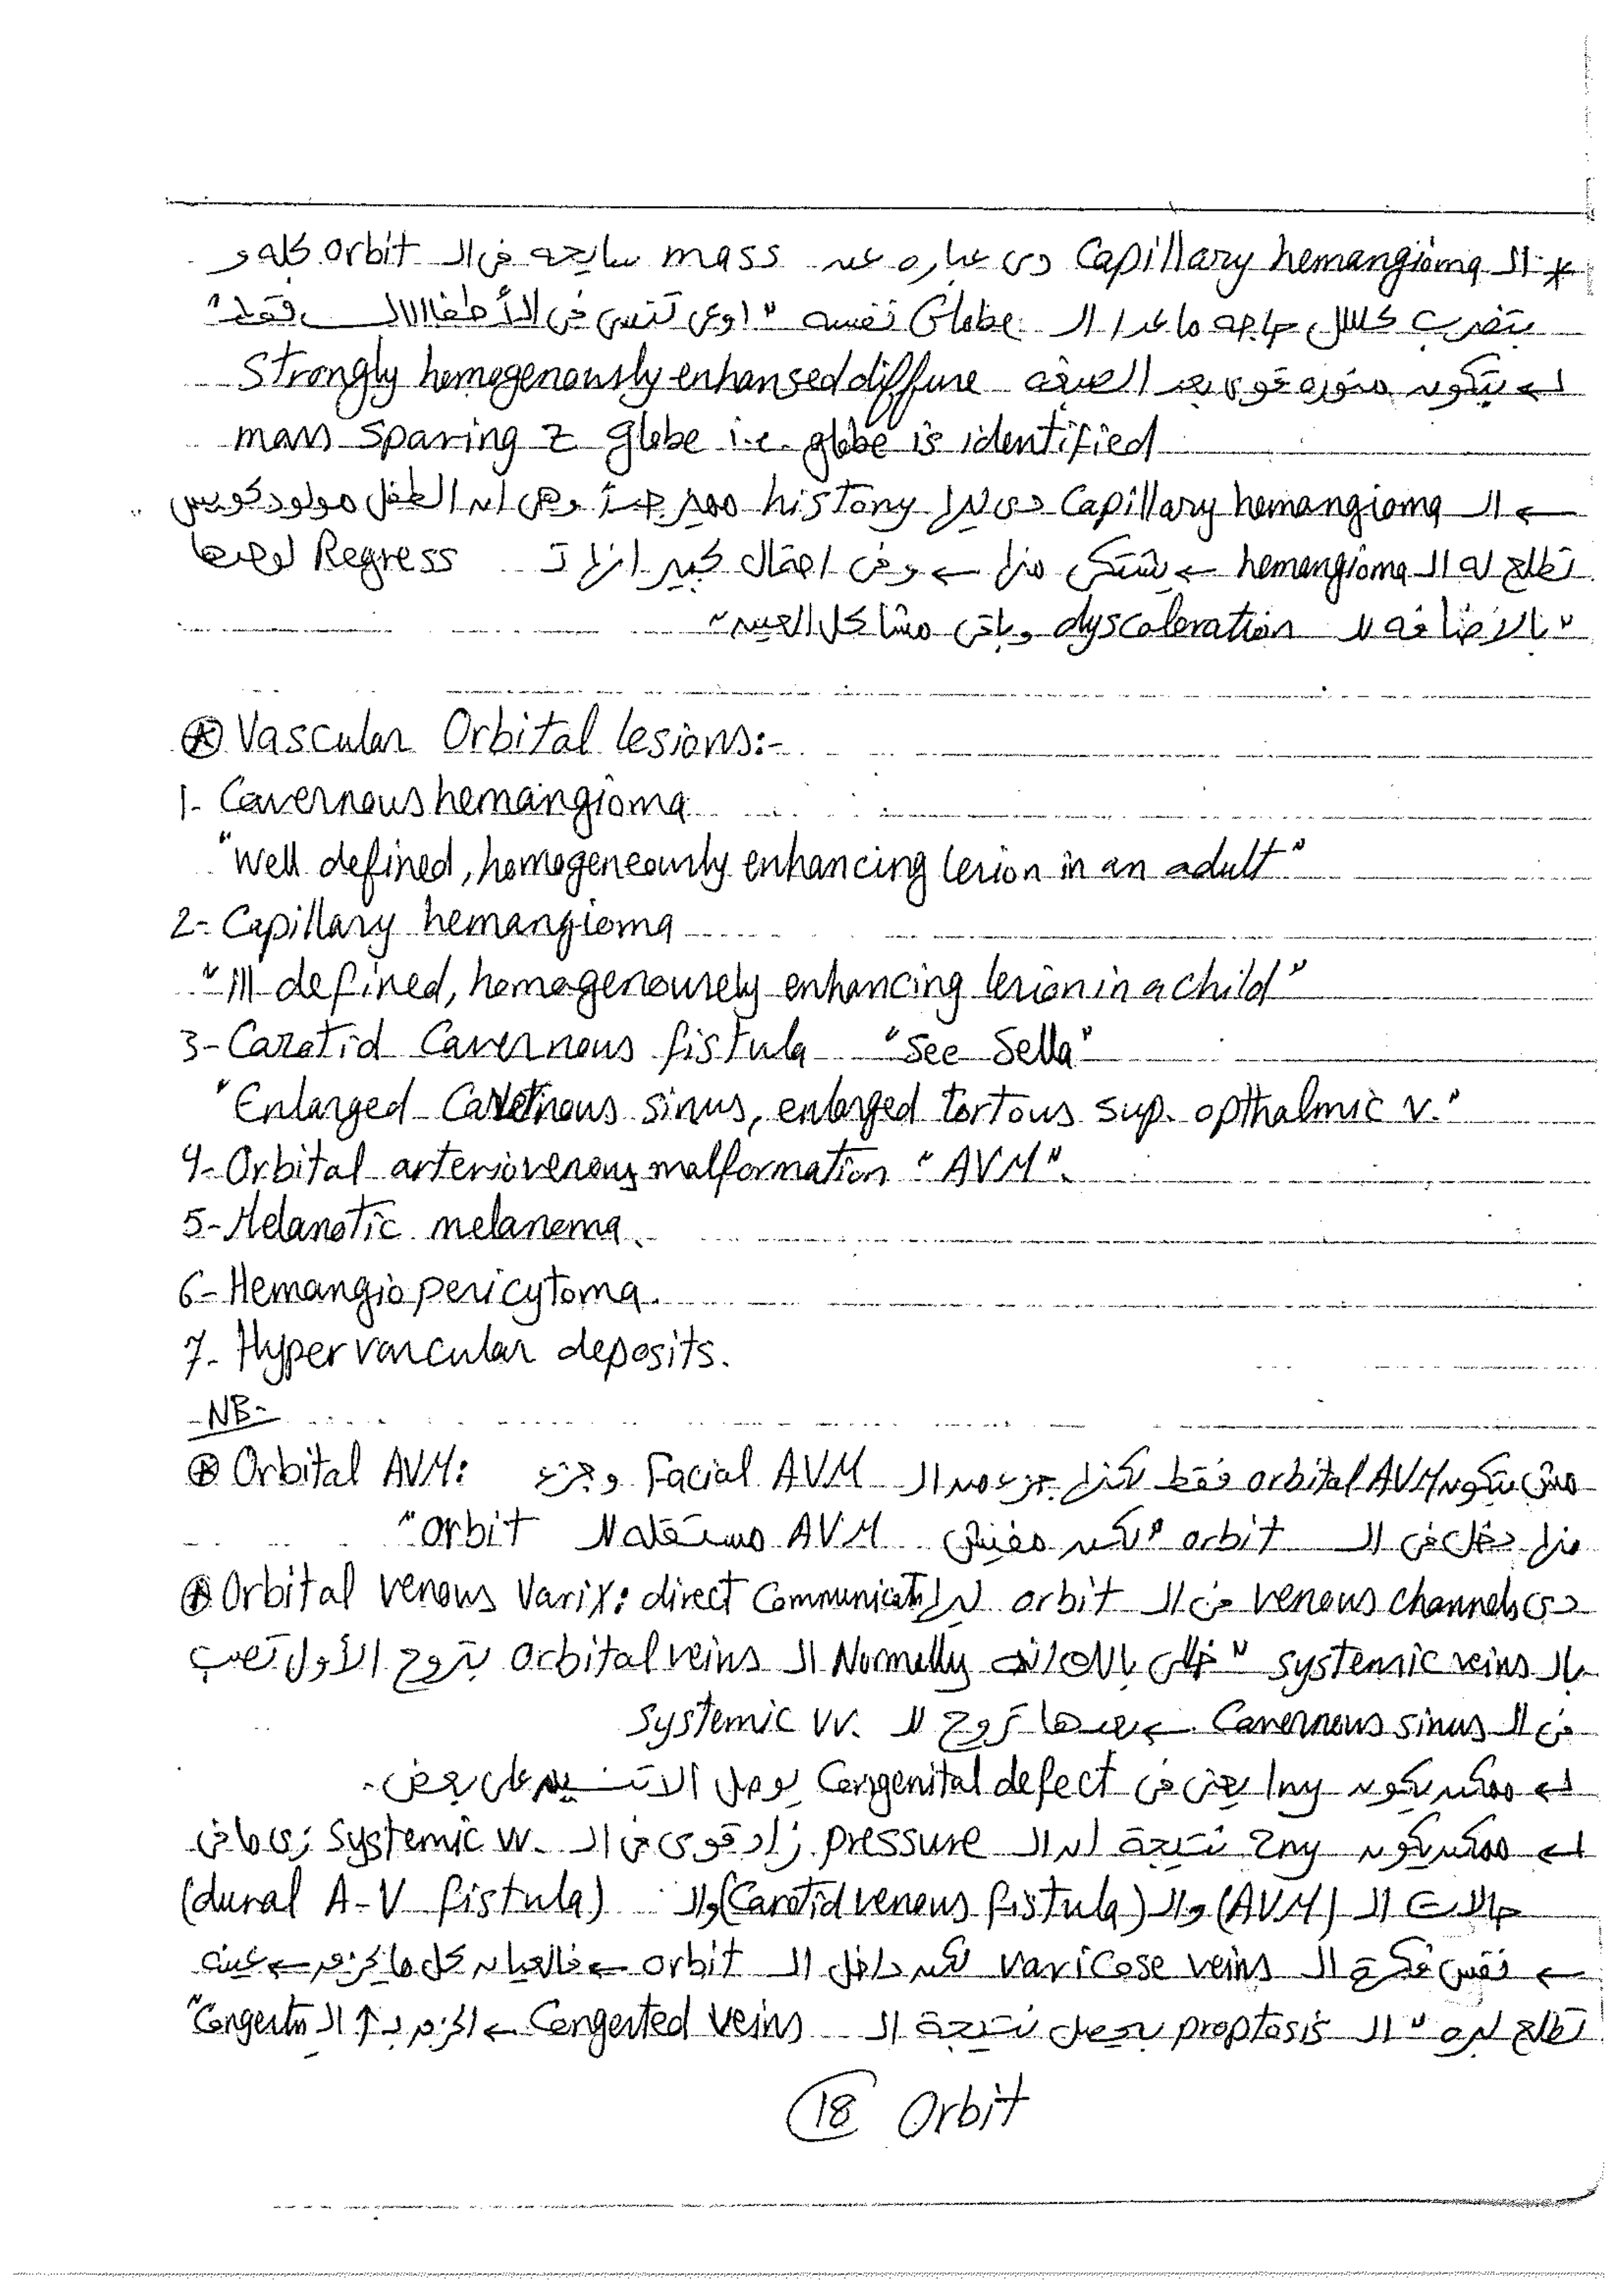 * الـ Capillary hemangioma دى عباره عن mass سايحه فى الـ orbit كله و
بتضرب كلللل حاجه ما عدا الـ Globe نفسه "اوعى تنسى فى الأطفااااال فقط"
↳ بتكون منوره قوى بعد الصبغه Strongly homogenously enhansed diffuse
mass sparing z globe i.e. globe is identified
← الـ Capillary hemangioma دى ليها history مميز جداً وهى ان الطفل مولود كويس
تطلع له الـ hemangioma ← يشتكى منها ← وفى احتمال كبير انها تـ Regress لوحدها
"بالاضافه للـ dyscoloration وباقى مشاكل العين"
⊛ Vascular Orbital lesions:-
1- Cavernous hemangioma
"Well defined, homogeneously enhancing lesion in an adult"
2- Capillary hemangioma
"Ill defined, homogenousely enhancing lesion in a child"
3- Carotid Cavernous fistula "See Sella"
"Enlarged Cavernous sinus, enlarged tortous sup. opthalmic v."
4- Orbital arteriovenous malformation "AVM".
5- Melanotic melanoma.
6- Hemangio pericytoma.
7- Hyper vascular deposits.
-NB-
⊛ Orbital AVM: مش بتكون orbital AVM فقط لكنها جزء من الـ Facial AVM وجزء
منها دخل فى الـ orbit "لكن مفيش AVM مستقله للـ orbit"
⊛ Orbital venous Varix: دى venous channels فى الـ orbit ليها direct Communicat
بالـ systemic veins "خلى بالك انه Normally الـ orbital veins بتروح الأول تصب
فى الـ Cavernous sinus ← بعدها تروح للـ Systemic vv.
↳ ممكن يكون 1ny يعنى فى Congenital defect يوصل الاتنين على بعض.
↳ ممكن يكون 2ny نتيجة ان الـ pressure زاد قوى فى الـ Systemic vv. زى ما فى
حالات الـ (AVM) والـ (Carotid venous fistula) والـ (dural A-V fistula)
← نفس فكرة الـ varicose veins لكن داخل الـ orbit ← فالعيان كل ما يحزق ← عينه
تطلع لبره "الـ proptosis بيحصل نتيجة الـ Congested veins ← الحزق بـ ↑ الـ Congestn"
18 Orbit